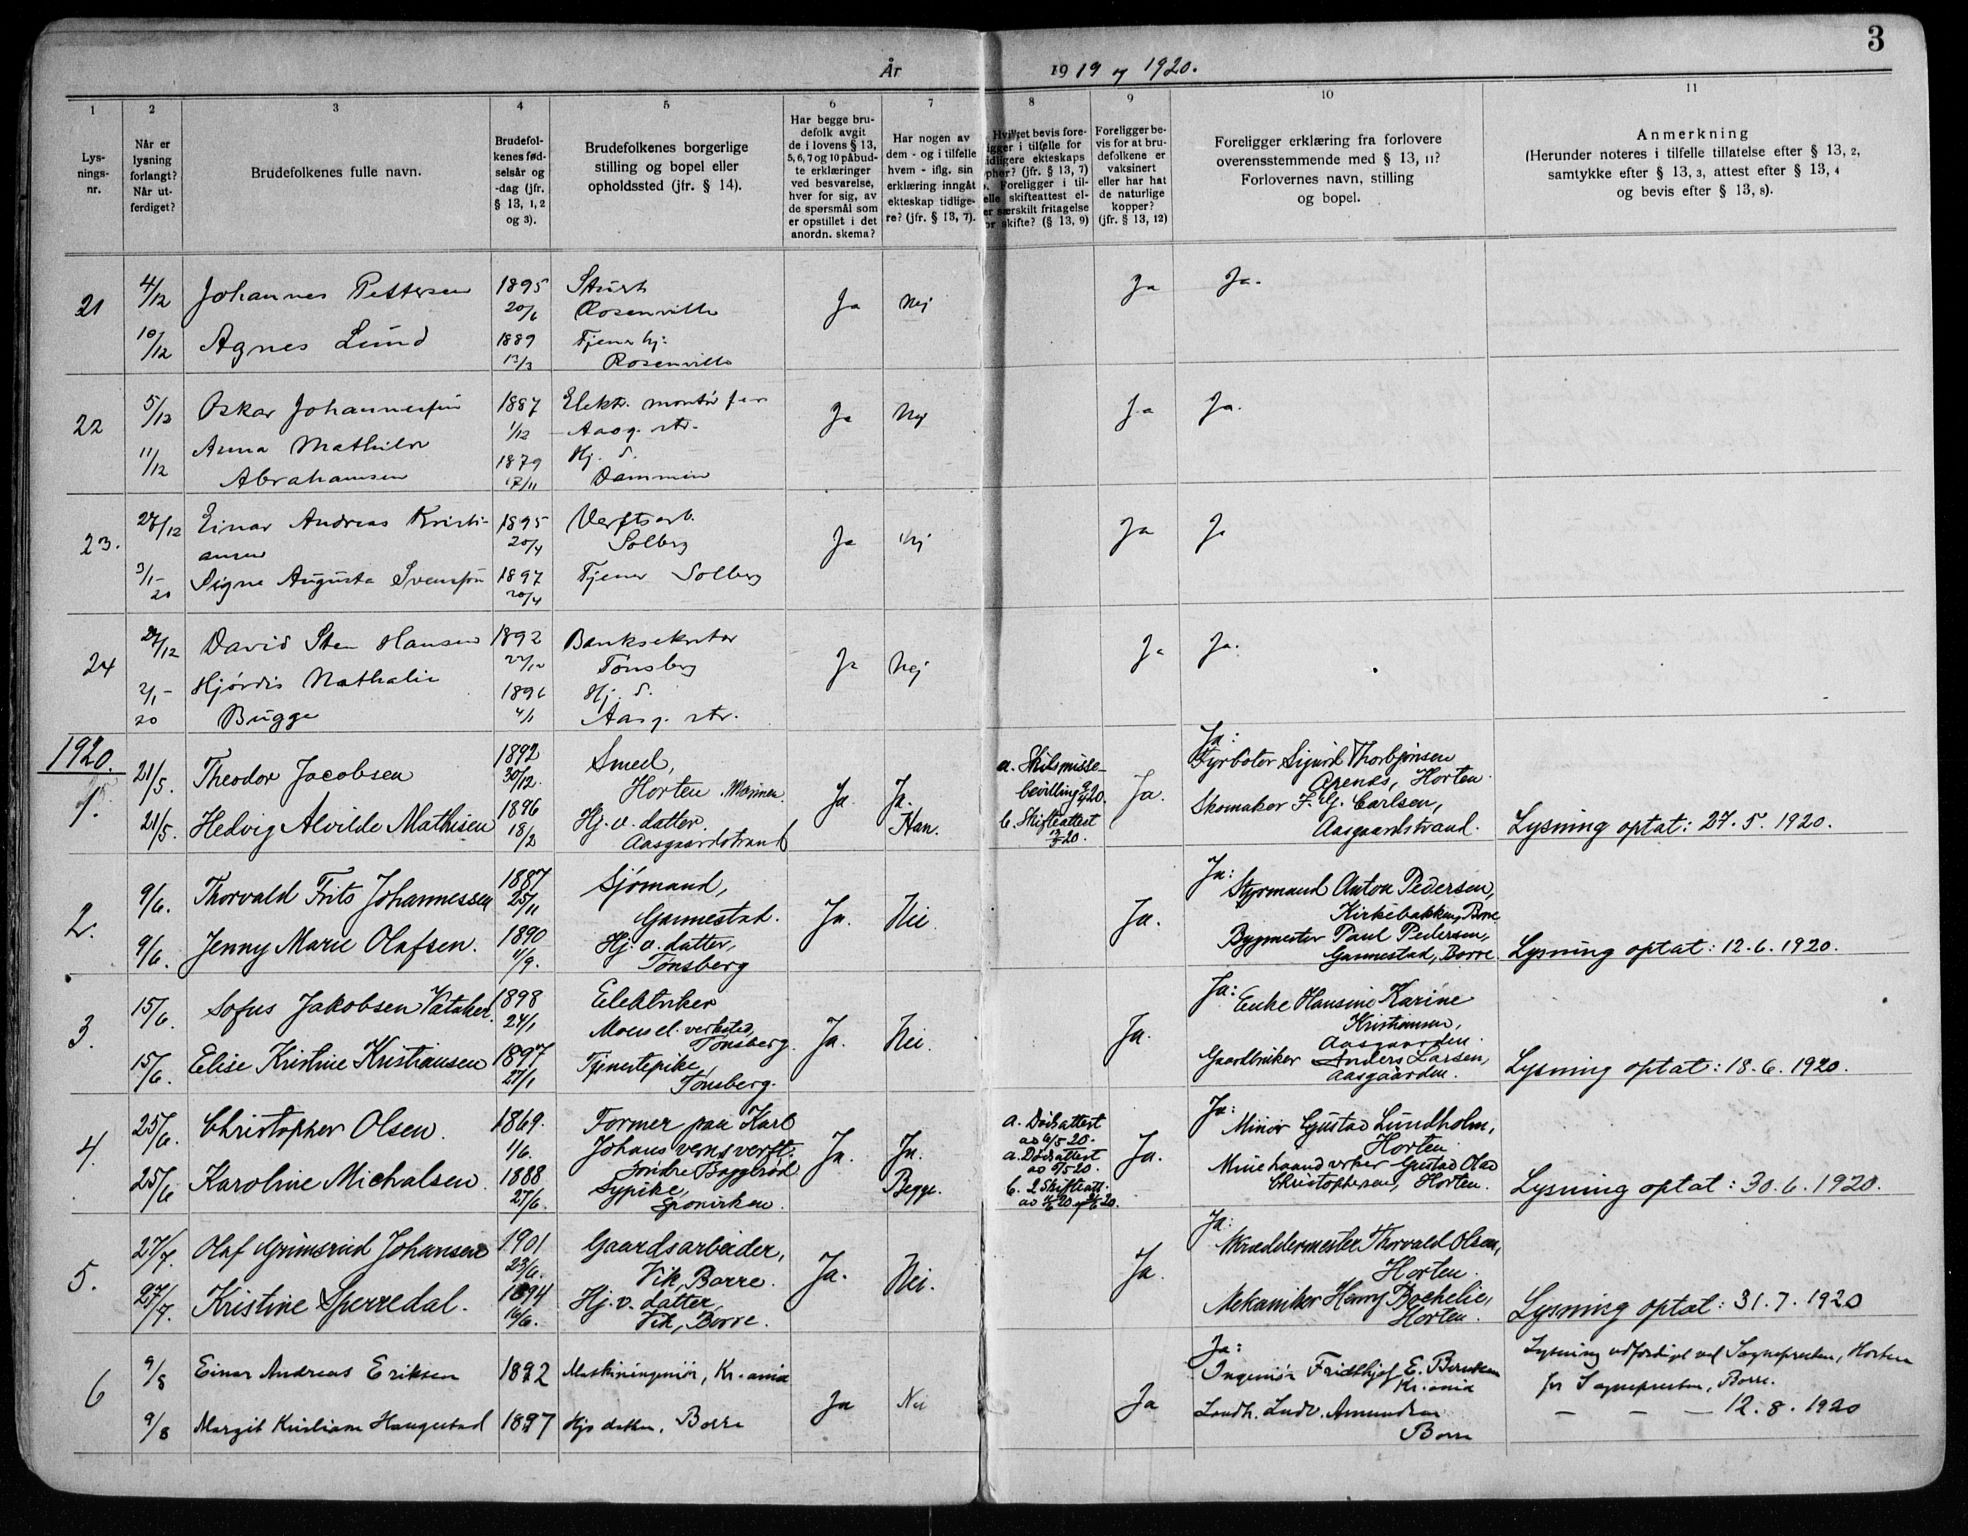 3
År 1919 og 1920.
1 2 3 4 5 6 7 8 9 10 11
Lys-
nings-
nr.
Når er
lysning
forlangt?
Når ut-
ferdiget?
Brudefolkenes fulle navn.
Brudefol-
kenes fød-
selsår og
-dag (jfr.
§ 13, 1, 2
og 3).
Brudefolkenes borgerlige
stilling og bopel eller
opholdssted (jfr. § 14).
Har begge bru-
defolk avgit
de i lovens § 13,
5, 6, 7 og 10 påbud-
te erklæringer
ved besvarelse,
hver for sig, av
de spørsmål som
er opstillet i det
anordn. skema?
Har nogen av
dem - og i tilfelle
hvem - iflg. sin
erklæring inngått
ekteskap tidlige-
re? (jfr. § 13, 7).
Hvilket bevis fore-
igger i tilfelle for
idligere ekteskaps
ophør? (jfr. § 13, 7)
Foreligger i til-
elle skifteattest el-
er særskilt fritagelse
or skifte? (§ 13, 9)
Foreligger be-
vis for at bru-
defolkene er
vaksinert
eller har hat
de naturlige
kopper?
(jfr. § 13, 12)
Foreligger erklæring fra forlovere
overensstemmende med § 13, 11?
Forlovernes navn, stilling
og bopel.
Anmerkning
(Herunder noteres i tilfelle tillatelse efter § 13, 2,
samtykke efter § 13, 3, attest efter § 13, 4
og bevis efter § 13, 8).
21
4/12 Johannes Pettersen 1895
20/6
Rosenville
Ja Nej Ja Ja.
10/12 Agnes Lund 1889
13/3
Tjener hj:
Rosenville
22
5/12 Oskar Johannessen 1887
1/12
Elektr. montør
Aasg. str.
Ja Nej Ja Ja.
11/12 Anna Mathilde
Abrahamsen
1879
Hj. d.
Dammen
23.
27/12 Einar Andreas Kristi-
ansen
1895
20/4
Verftsarb.
Solberg
Ja Nej Ja Ja
3/1-
20
Signe Augusta Svensson 1897
20/4
Tjener Solberg
24
27/12 David Sten Hansen 1892
Banksekretær
Tønsberg
Ja Nej Ja Ja.
2/1-
20
Hjørdis Nathalie
Bugge
4/1
Hj. d.
Aasg. str.
1920.
1.
21/5. Theodor Jacobsen 1892
30/12.
Smed,
Horten. Marinen
Ja. Ja.
Han.
a. Skilsmisse-
bevilling
b. Skifteattest
Ja.
Ja:
Fyrbøter Sigurd Thorbjørnsen
Horten.
Skomaker F. G. Carlsen,
Aasgaardstrand.
21/5. Hedvig Alvilde Mathisen 1896
18/2
Hj. v. datter.
Aasgaardstrand
Lysning optat: 27. 5. 1920.
2.
9/6. Thorvald Frits Johannessen 1887
25/11
Sjømand,
Gannestad.
Ja. Nei. Ja.
Ja:
Styrmand Anton Pedersen,
Kirkebakken, Borre
Bygmester Paul Pedersen,
Gannestad, Borre.
9/6. Jenny Marie Olafsen. 1890
11/9.
Hj. v. datter,
Tønsberg
Lysning optat: 12. 6. 1920.
3.
15/6. Sofus Jakobsen Vataker. 1898
24/1
Elektriker
verksted,
Tønsberg.
Ja. Nei. Ja.
Ja:
Enke Hansine Karine
Kristiansen,
Aasgaarden.
Gaardbruker Anders Larsen,
Aasgaarden.
15/6. Elise Kristine Kristiansen 1897
27/1
Tjenestepike,
Tønsberg.
Lysning optat: 18. 6. 1920.
4.
25/6. Christopher Olsen. 1869.
1/6.
Former paa Karl
Johans vern verft.
Søndre Baggerød
Ja. Ja.
Begge.
a. Dødsattest
av 6/5 20.
a. Dødsattest
b. 2 Skifteatt.
Ja.
Ja:
Minør Gustav Lundholm,
Horten
Minehaandverker Gustav Olav
Christophersen, Horten.
25/6 Karoline Michalsen. 1888
27/6.
Sypike,
Lysning optat: 30. 6. 1920.
5.
27/7. Olaf Grimsrud Johansen 1901
23/6.
Gaardsarbeider,
Vik, Borre.
Ja. Nei. Ja.
Ja:
Skræddermester Thorvald Olsen,
Horten.
Mekaniker Henry Bochelie,
Horten.
27/7. Kristine Sperredal. 1894
16/6.
Hj. v. datter
Vik, Borre.
Lysning optat: 31. 7. 1920
6
9/8 Einar Andreas Eriksen 1892 Maskiningeniør, Kr.ania
Ja Nei Ja
Ja:
Ingeniør Fridthjof E. Berntsen
Kr.ania
Landh. Ludv. Amundsen
Borre
9/8 Margit Kristiane Haugestad 1897 Hjv datter, Borre
Lysning utferdiget ved Sognepresten, Horten
for Sognepresten, Borre.
— — — 12. 8. 1920